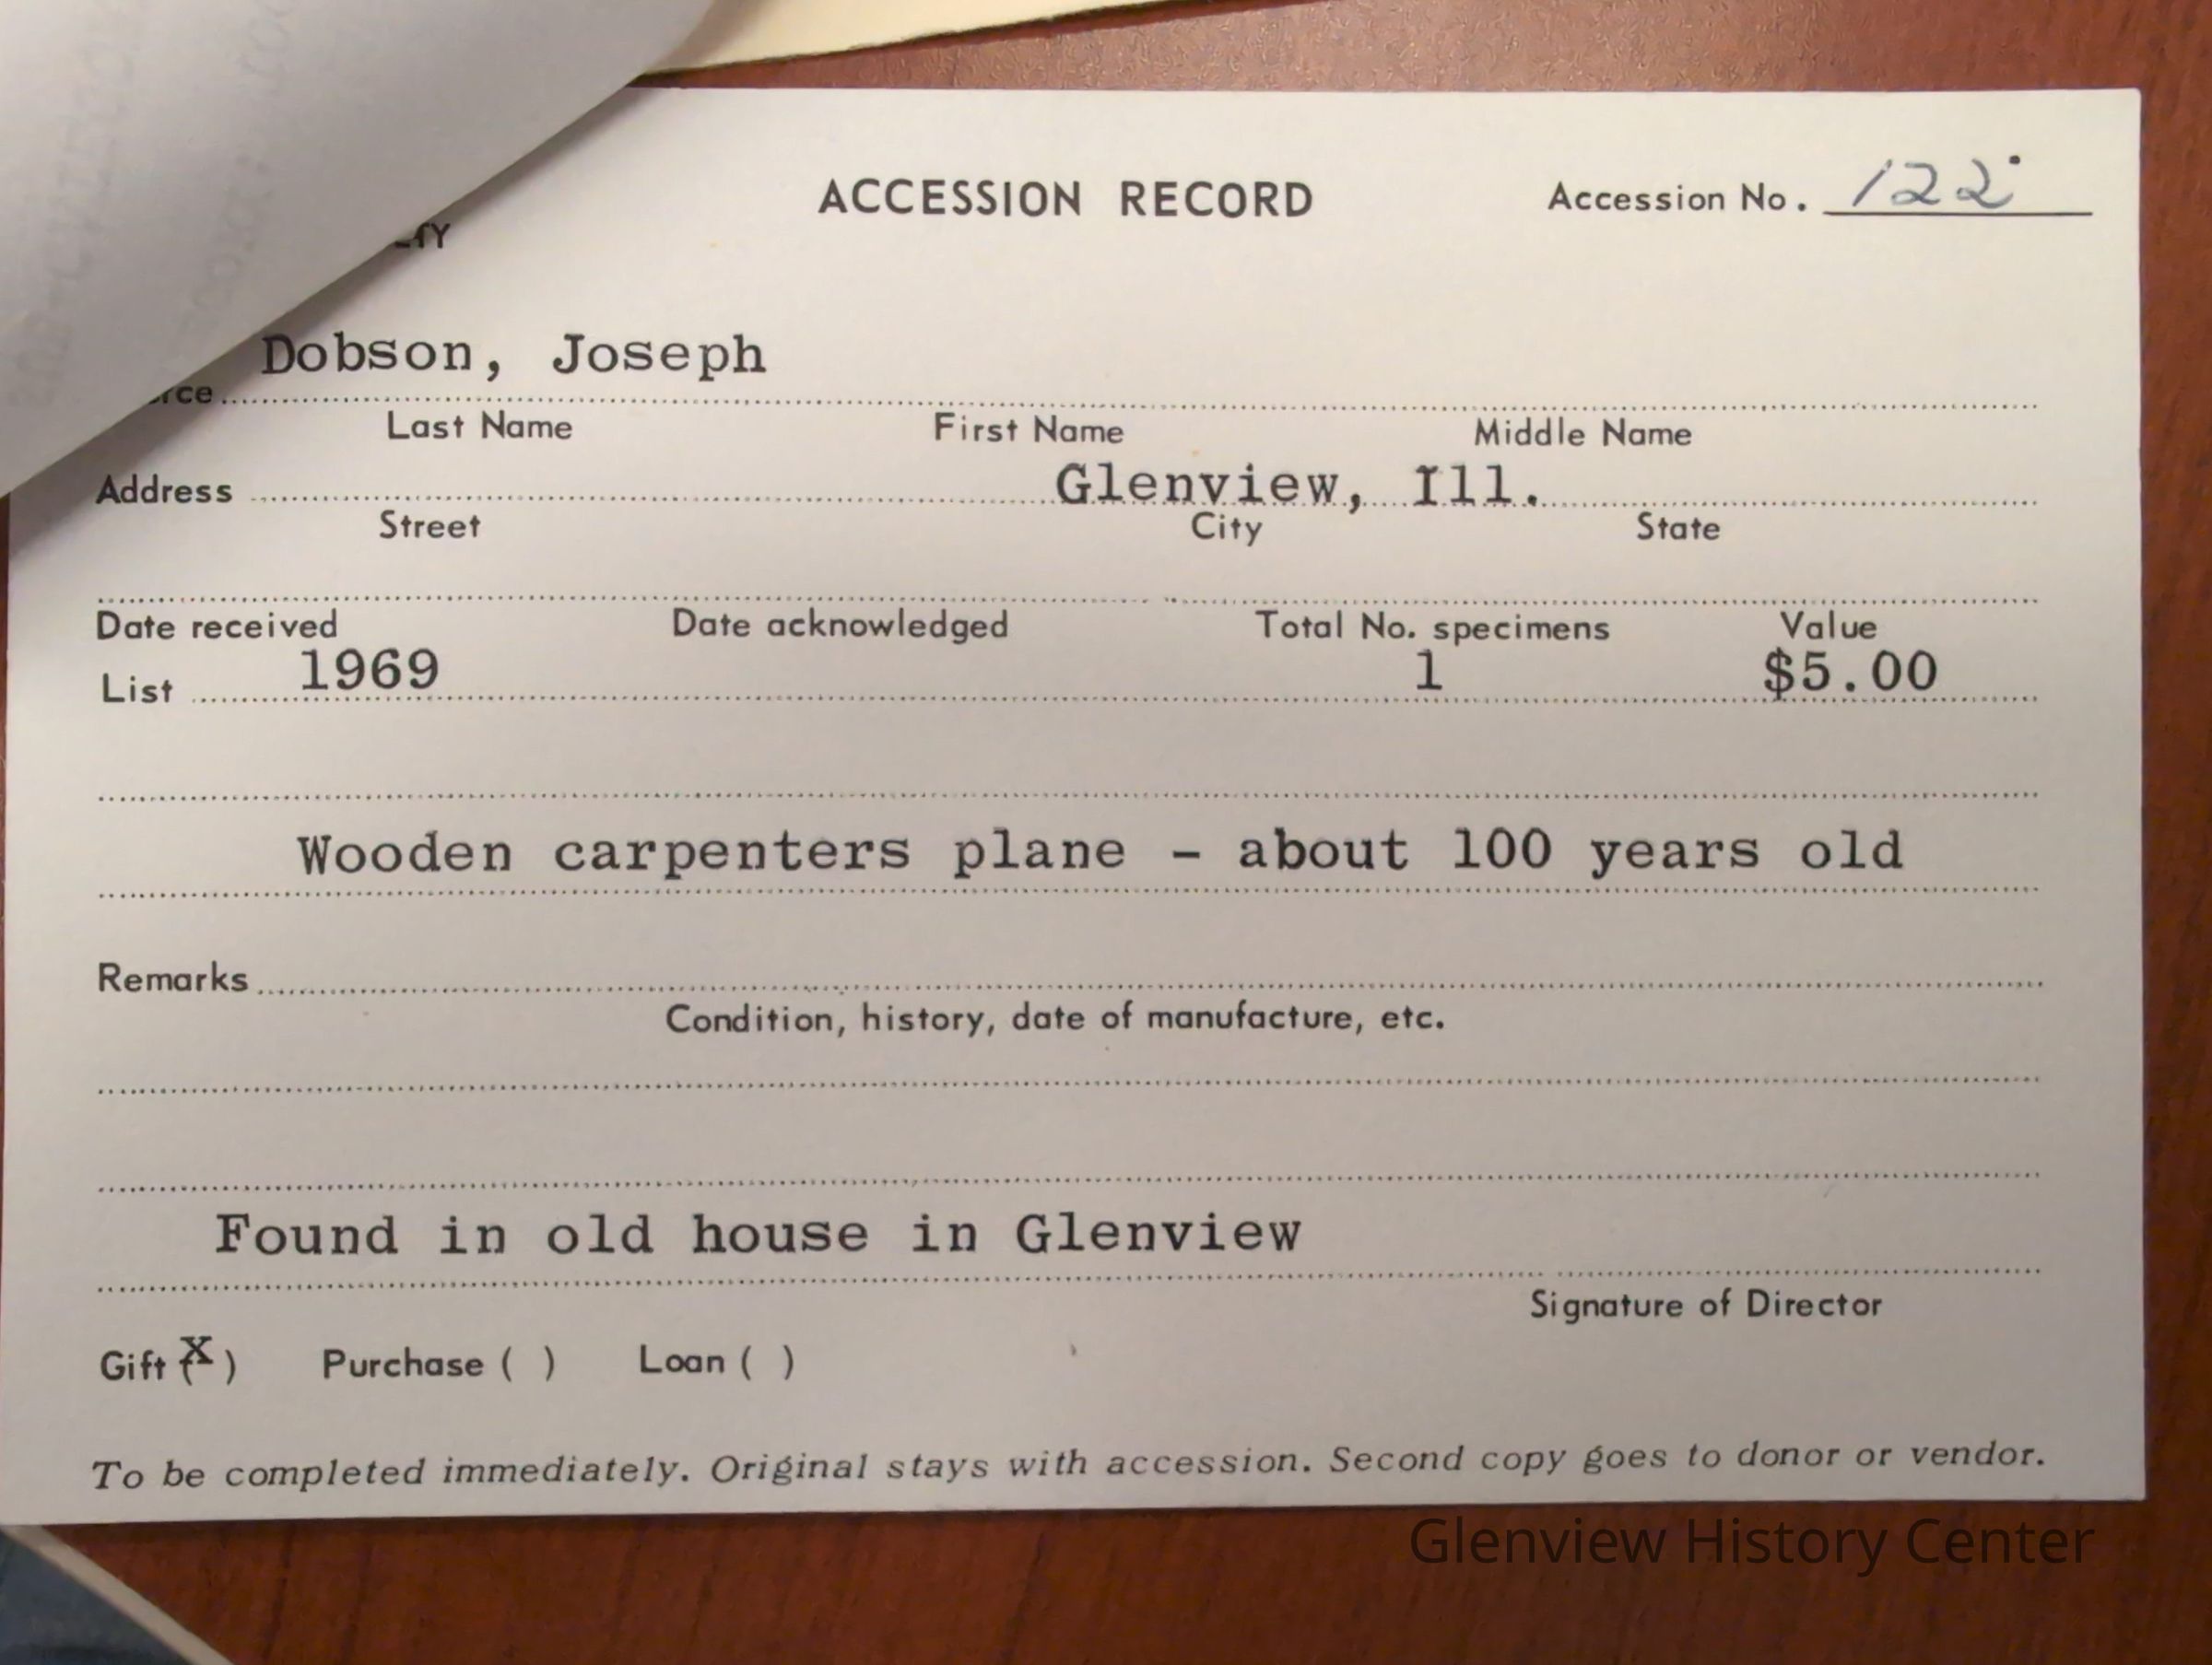 ACCESSION RECORD Accession No. 122
Dobson, Joseph
Last Name First Name Middle Name
Address Glenview, Ill.
Street City State
Date received Date acknowledged Total No. specimens Value
List 1969 1 $5.00
Wooden carpenters plane - about 100 years old
Remarks
Condition, history, date of manufacture, etc.
Found in old house in Glenview
Signature of Director
Gift (X) Purchase ( ) Loan ( )
To be completed immediately. Original stays with accession. Second copy goes to donor or vendor.
Glenview History Center